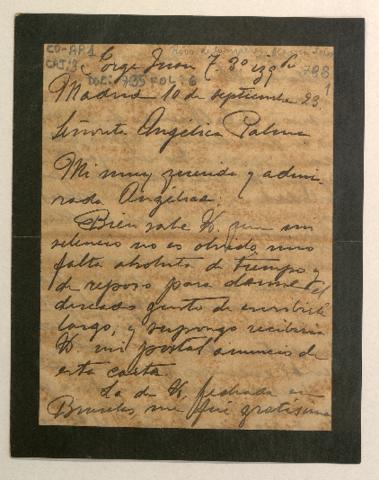 CO-AP1
CAJ:9
DOC: 735 FOL: 6
798
1
C/ Jorge Juan 7. 3º izqª
Madrid 10 de septiembre 23
Señorita Angélica Palma
Mi muy querida y admi
rada Angélica:
Bien sabe V. que mi
silencio no es olvido, sino
falta absoluta de tiempo y
de reposo para darme el
deseado gusto de escribirle
largo, y supongo recibiría
V. mi postal anuncio de
esta carta.
La de V. fechada en
Bruselas me fué gratísima